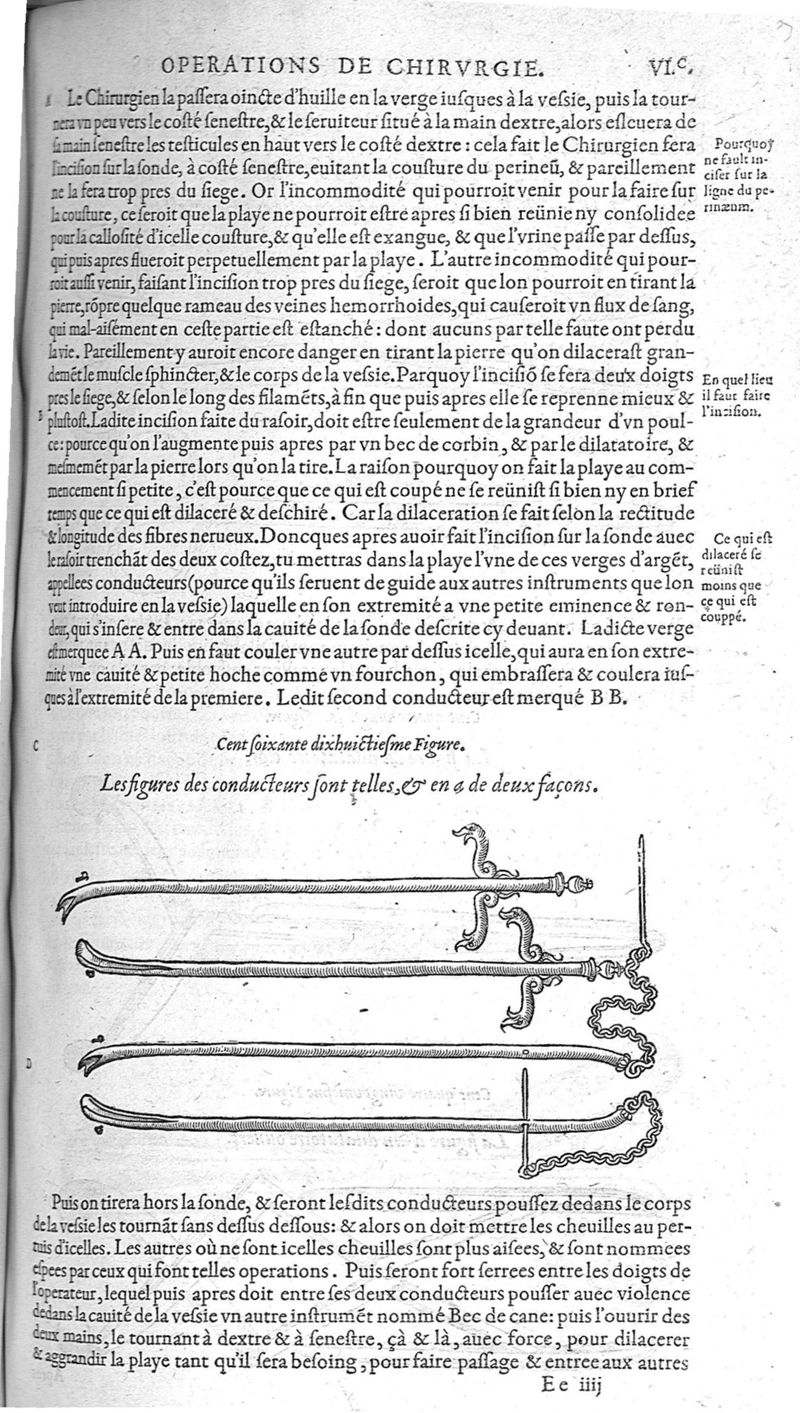 OPERATIONS DE CHIRVRGIE. VI.C.
Le Chirurgien la paſſera oincte d'huille en la verge iuſques à la veſsie, puis la tour-
nera vn peu vers le coſté ſeneſtre, & le ſeruiteur ſitué à la main dextre, alors eſleuera de
ſa main ſeneſtre les teſticules en haut vers le coſté dextre : cela fait le Chirurgien fera
l'inciſion ſur la ſonde, à coſté ſeneſtre, euitant la couſture du perineũ, & pareillement
ne la fera trop pres du ſiege. Or l'incommodité qui pourroit venir pour la faire ſur
la couſture, ce ſeroit que la playe ne pourroit eſtre apres ſi bien reünie ny conſolidee
pour la calloſité d'icelle couſture, & qu'elle eſt exangue, & que l'vrine paſſe par deſſus,
qui puis apres flueroit perpetuellement par la playe. L'autre incommodité qui pour-
roit auſſi venir, faiſant l'inciſion trop pres du ſiege, ſeroit que lon pourroit en tirant la
pierre, rõpre quelque rameau des veines hemorrhoides, qui cauſeroit vn flux de ſang,
qui mal-aiſément en ceſte partie eſt eſtanché : dont aucuns par telle faute ont perdu
la vie. Pareillement y auroit encore danger en tirant la pierre qu'on dilaceraſt gran-
demẽt le muſcle ſphincter, & le corps de la veſsie. Parquoy l'inciſiõ ſe fera deux doigts
pres le ſiege, & ſelon le long des filamẽts, à fin que puis apres elle ſe reprenne mieux &
pluſtoſt. Ladite inciſion faite du raſoir, doit eſtre ſeulement de la grandeur d'vn poul-
ce : pource qu'on l'augmente puis apres par vn bec de corbin, & par le dilatatoire, &
meſmemẽt par la pierre lors qu'on la tire. La raiſon pourquoy on fait la playe au com-
mencement ſi petite, c'eſt pource que ce qui eſt coupé ne ſe reüniſt ſi bien ny en brief
temps que ce qui eſt dilaceré & deſchiré. Car la dilaceration ſe fait ſelon la rectitude
& longitude des fibres nerueux. Doncques apres auoir fait l'inciſion ſur la ſonde auec
le raſoir trenchãt des deux coſtez, tu mettras dans la playe l'vne de ces verges d'argẽt,
appellees conducteurs (pource qu'ils ſeruent de guide aux autres inſtruments que lon
veut introduire en la veſsie) laquelle en ſon extremité a vne petite eminence & ron-
deur, qui s'inſere & entre dans la cauité de la ſonde deſcrite cy deuant. Ladicte verge
eſt merquee A A. Puis en faut couler vne autre par deſſus icelle, qui aura en ſon extre-
mité vne cauité & petite hoche comme vn fourchon, qui embraſſera & coulera iuſ-
ques à l'extremité de la premiere. Ledit ſecond conducteur eſt merqué B B.
Pourquoy
ne fault in-
ciſer ſur la
ligne du pe-
rinæum.
En quel lieu
il faut faire
l'inciſion.
Ce qui eſt
dilaceré ſe
reüniſt
moins que
ce qui eſt
couppé.
C
Cent ſoixante dixhuictieſme Figure.
Les figures des conducteurs ſont telles, & en a de deux façons.
D
Puis on tirera hors la ſonde, & ſeront leſdits conducteurs pouſſez dedans le corps
de la veſsie les tournãt ſans deſſus deſſous : & alors on doit mettre les cheuilles au per-
tuis d'icelles. Les autres où ne ſont icelles cheuilles ſont plus aiſees, & ſont nommees
eſpees par ceux qui font telles operations. Puis ſeront fort ſerrees entre les doigts de
l'operateur, lequel puis apres doit entre ſes deux conducteurs pouſſer auec violence
dedans la cauité de la veſsie vn autre inſtrumẽt nommé Bec de cane : puis l'ouurir des
deux mains, le tournant à dextre & à ſeneſtre, çà & là, auec force, pour dilacerer
& aggrandir la playe tant qu'il ſera beſoing, pour faire paſſage & entree aux autres
E e iiij